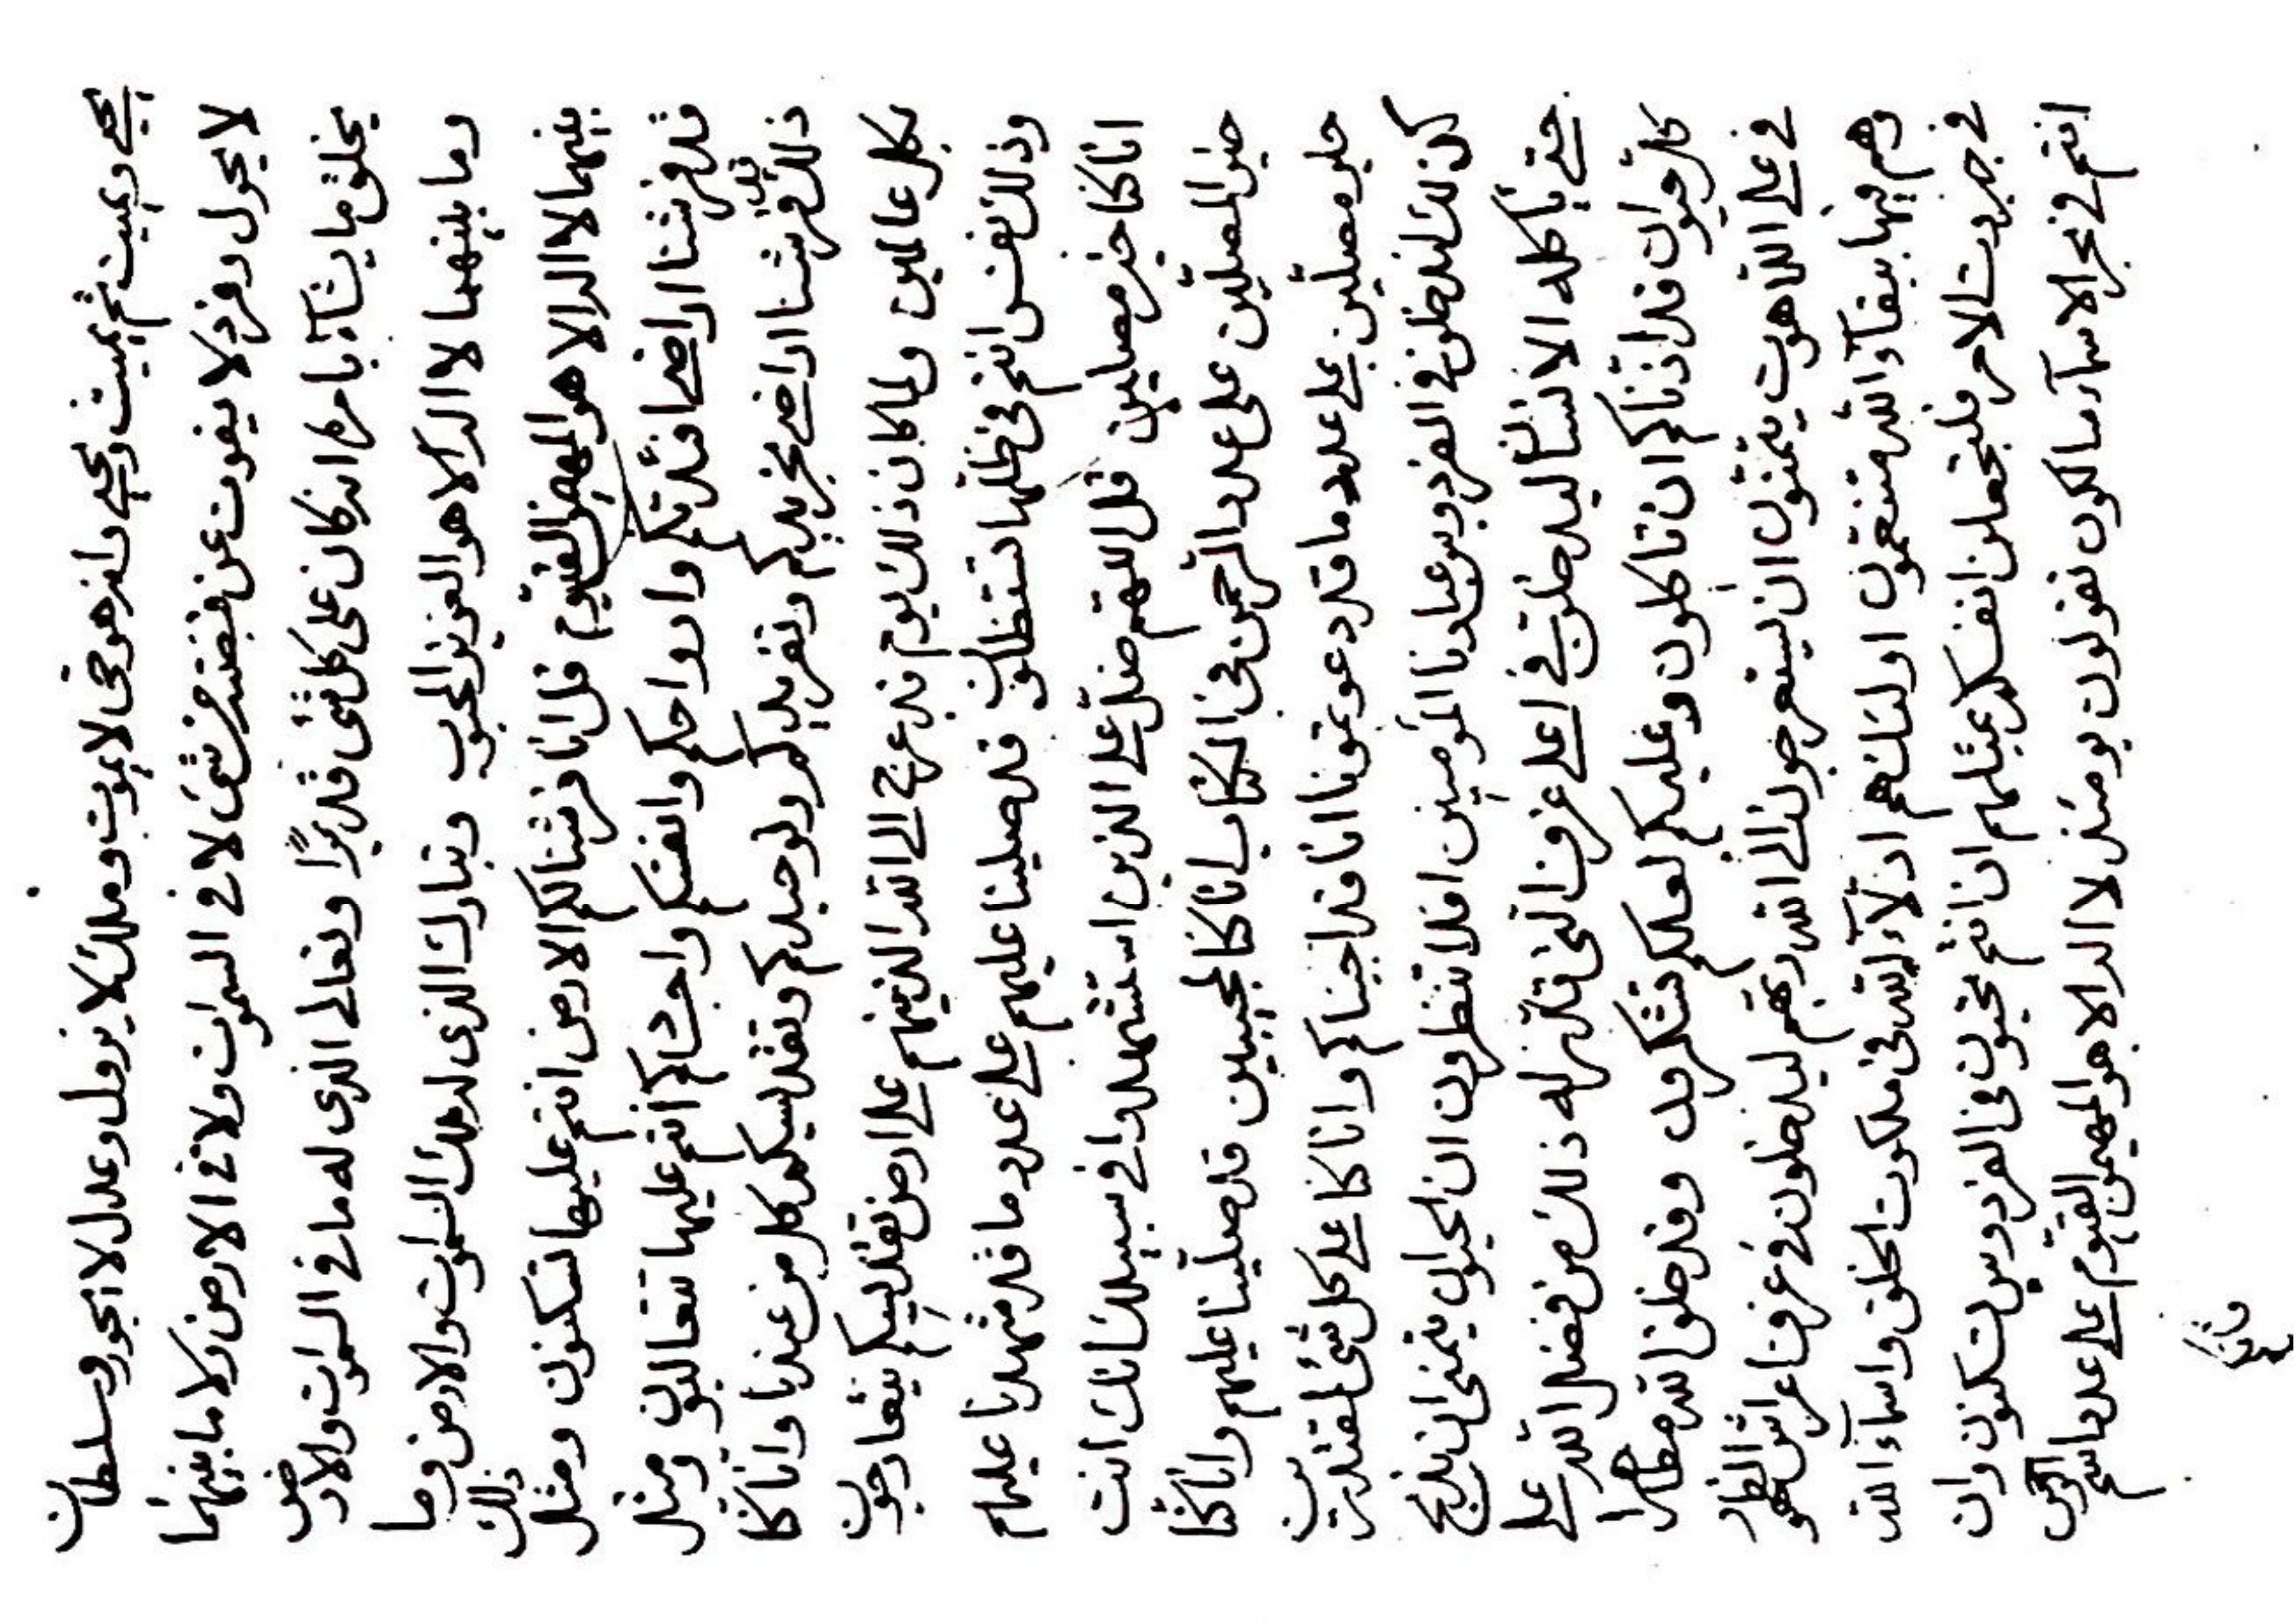 يحيي ويميت ثم يميت ويحيي وانه هو حي لا يموت وملك لا يزول وعدل لا يجور وسلطان
لا يحول وفرد لا يفوت عن قبضته من شئ لا في السموات ولا في الارض ولا ما بينهما
يخلق ما يشآء بامره انه كان على كل شئ قديرًا وتعالى الذي له ما في السموات والارض
وما بينهما لا اله الا هو العزيز المحبوب وتبارك الذي له ملك السموات والارض وما
بينهما لا اله الا هو المهيمن القيوم قل انا فرشنا لكم الارض انتم عليها تسكنون ومثل ذلك
قد فرشنا اراضي افئدتكم وارواحكم وانفسكم واجسادكم انتم عليها تتعالون ومثل
ذلك قد فرشنا اراضي تجريدكم وتفريدكم وتوحيدكم وتقديسكم كل من عندنا وانا كنا
بكل عالمين ولما كان ذلك يوم قد عرج الى الله الذينهم على ارض تقديسكم يتعارجون
وذلك نفس انتم في ظلها تستظلون قد صلينا عليهم على عدد ما قد شهدنا عليهم
انا كنا خير مصلين قل اللهم صل على الذين استشهدوا في سبيلك انك انت
خير المصلين على عدد الرحمن في الكتاب انا كنا لمجيبين قد صلينا عليهم وانا كنا
خير مصلين على عدد ما قد دعوتمونا انا قد اجبناكم وانا كنا على كل شئ لمقتدرين
كذلك ليدخلون في الفردوس عبادنا المؤمنين افلا تنظرون ان الحيوان يتمنى ان يذبح
حتى ياكله الانسان ليدخلن في اعلى غرف التي قدر له ذلك من فضل الله على
كل حيوان قد اذناكم ان تاكلون وعليكم لعلكم تشكرون وقد خلق الله مظاهرا
في على اللاهوت يتمنون ان ليستعرجون الى الله ربهم ليدخلون في غرفات اعراش الظهور
وهم فيها ببقآء الله متنعمون اولئك هم ادلآء لله في ملكوت الخلق واسمآء الله
في جبروت الامر فلتجعلن انفسكم بمثلهم ان انتم تحبون في الفردوس لتسكنون وان
انتم في بحر الاسمآء مالكون تقولون يومئذ لا اله الا هو المهيمن القيوم على عدد اسم